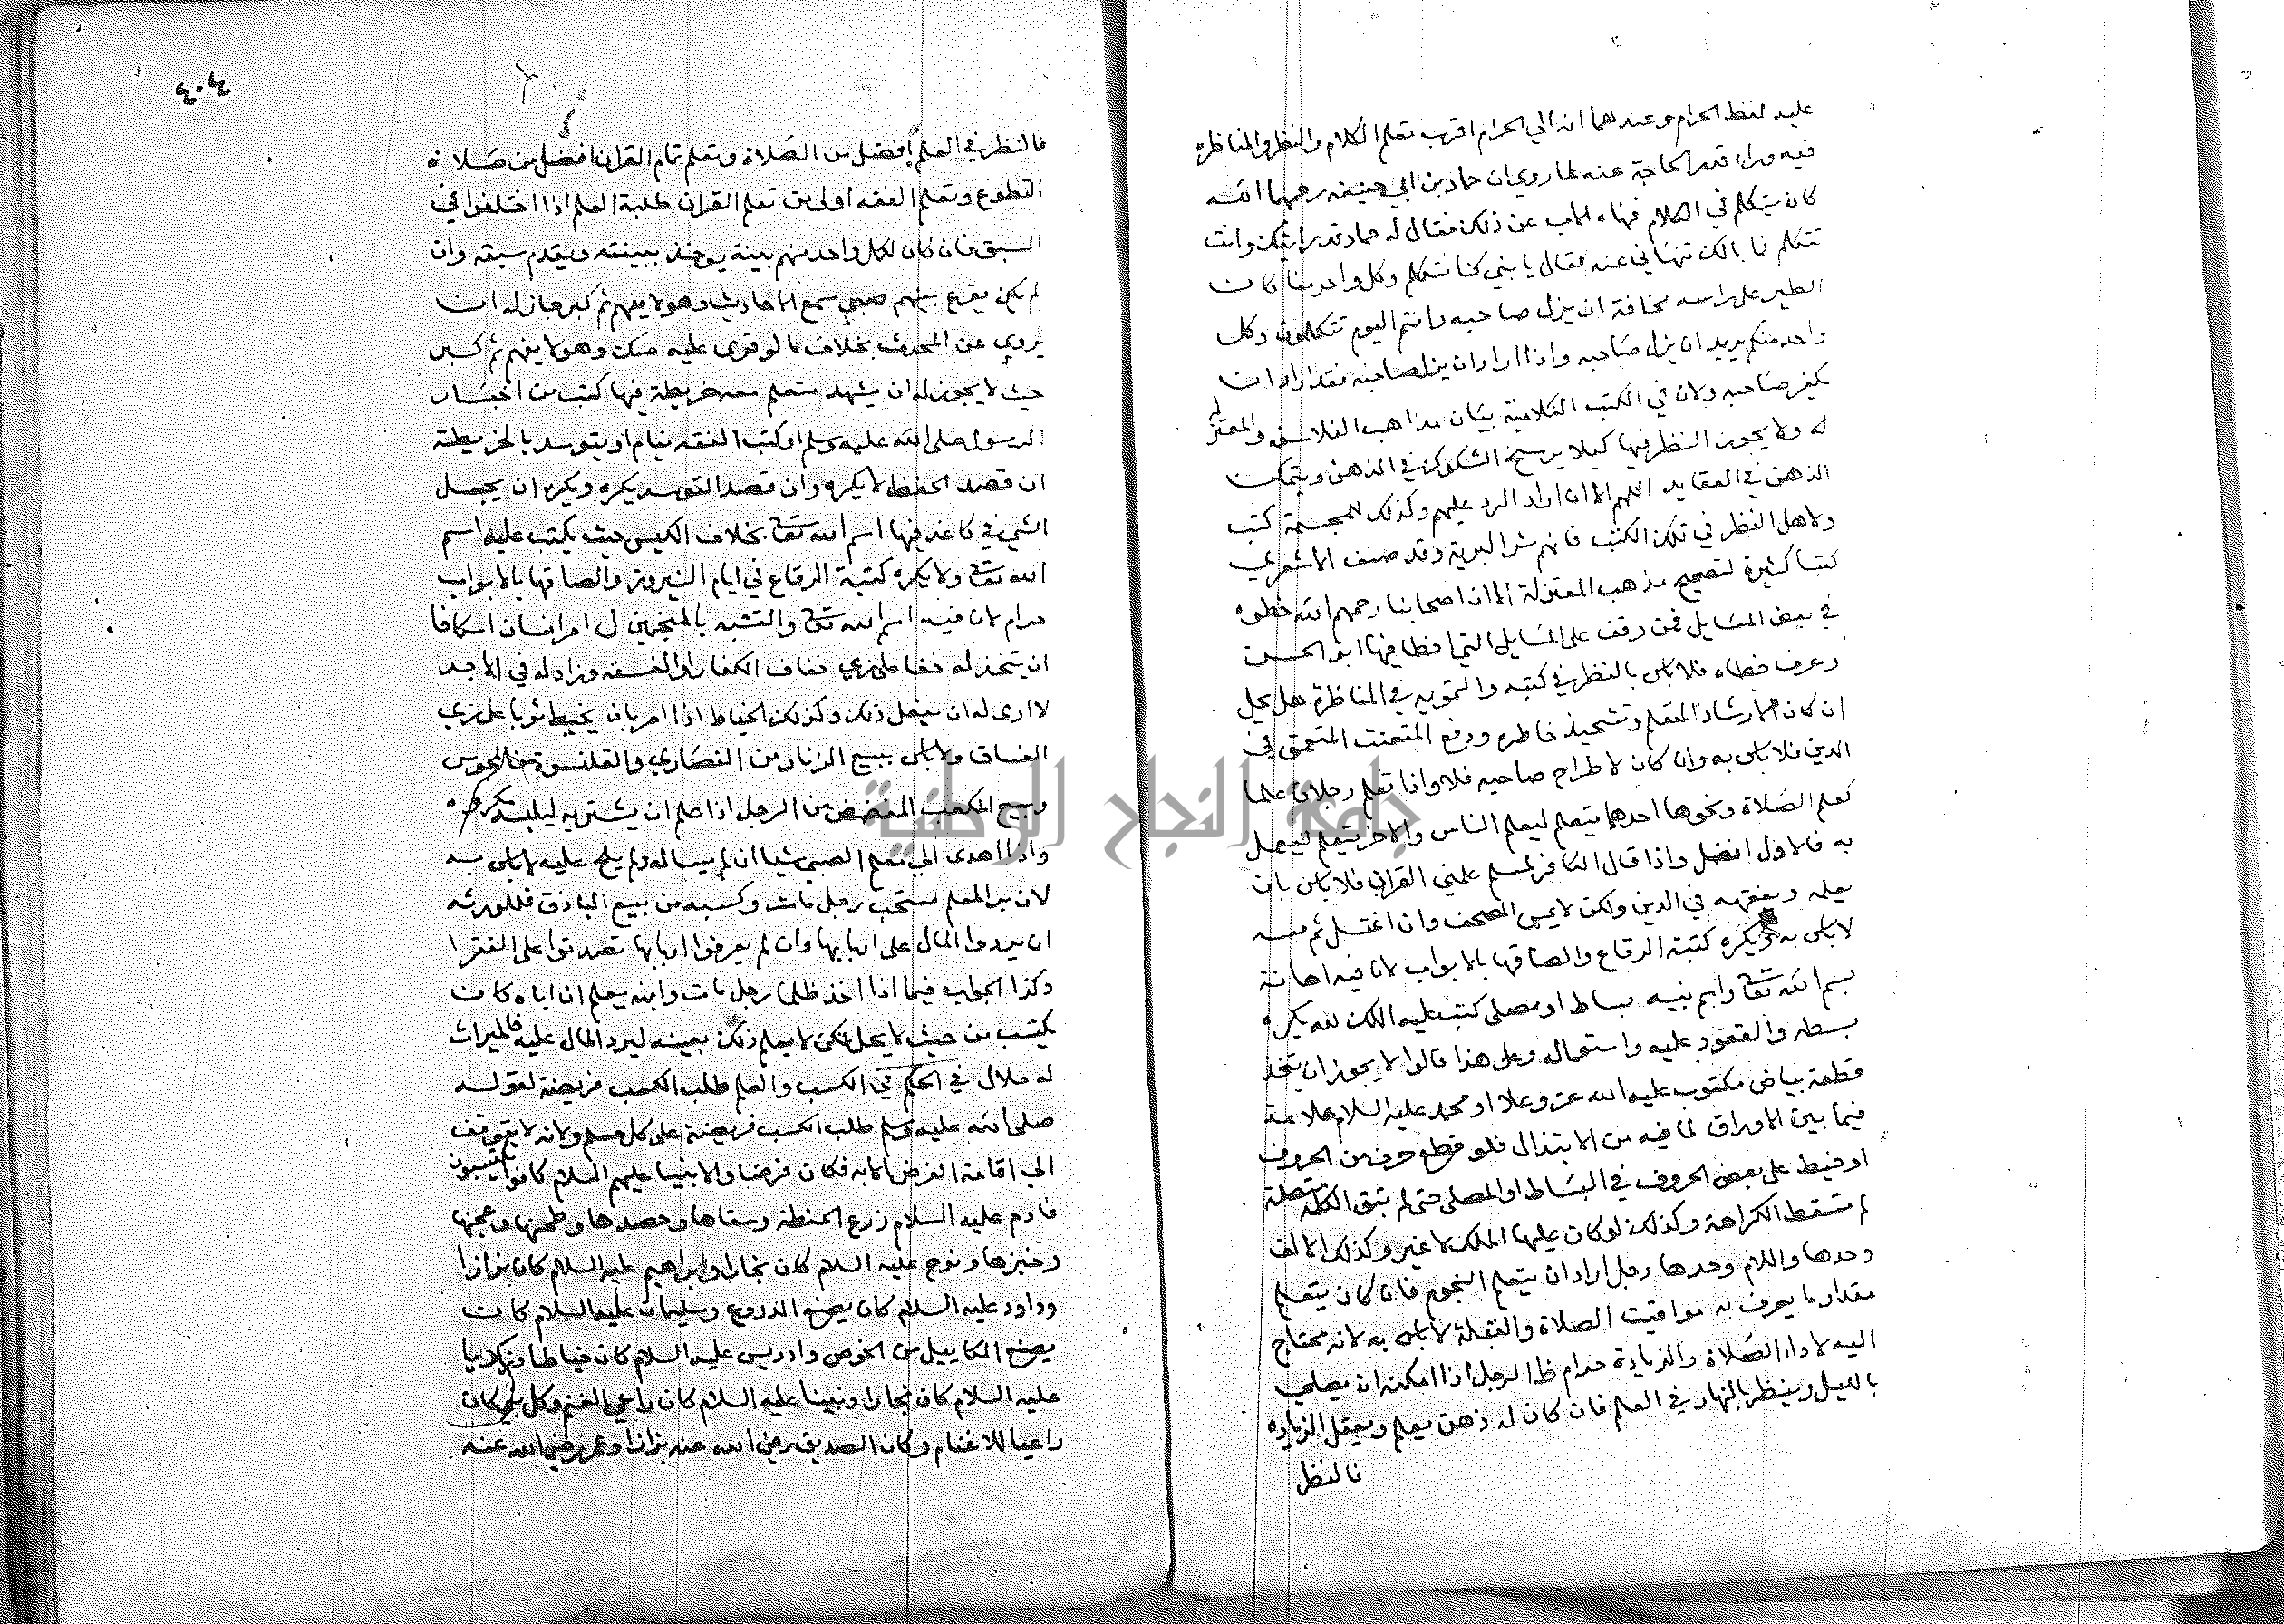 عليه لفظ الحرام وعندهما انه الي الحرام اقرب تعلم الكلام والنظر والمناظره
فيه وراء قدر الحاجة عنه لما روي ان حماد بن ابي حنيفه رحمهما الله
كان يتكلم في الكلام فنهاه الاب عن ذلك فقال له حماد قد رايتك وانت
تتكلم فما بالك تنهاني عنه فقال يا بني كنا نتكلم وكل واحد منا كان
الطير على راسه مخافة ان يزل صاحبه وانتم اليوم تتكلمون وكل
واحد منكم يريد ان يزل صاحبه واذا اراد ان يزل صاحبه فقد اراد ان
يكفر صاحبه ولان في الكتب الكلامية بيان مذاهب الفلاسفه والمعتز
له ولا يجوز النظر فيها كيلا يرسخ الشكوك في الذهن ويتمكن
الذهن في العقايد اللهم الا ان اراد الرد عليهم وكذلك للمجسمة كتب
ولاهل النظر في تلك الكتب فانهم شر البرية وقد صنف الاشعري
كتبا كثيرة لتصحيح مذهب المعتزلة الا ان اصحابنا رحمهم الله خطوه
في بعض المسايل فمن وقف على المسايل التي اخطا فيها ابو الحسن
وعرف خطاه فلا باس بالنظر في كتبه والتمويه في المناظرة هل يحل
ان كان لارشاد المتعلم وتشحيذ خاطره ودفع المتعنت المتعمق في
الدين فلا باس به وان كان لاطراح صاحبه فلا واذا تعلم رجلان علما
كعلم الصلاة ونحوها احدهما يتعلم ليعلم الناس والاخر يتعلم ليعمل
به فالاول افضل واذا قال الكافر لمسلم علمني القران فلا باس بان
يعلمه ويفقهه في الدين ولكن لا يمس المصحف وان اغتسل ثم مسه
لا باس به ويكره كتبة الرقاع والصاقها بالابواب لان فيه اهانة
بسم الله تعالى واسم نبيه بساط او مصلى كتب عليه الملك لله يكره
بسطه والقعود عليه واستعماله وعلى هذا قالوا لا يجوز ان يتخذ
قطعة بياض مكتوب عليه الله عز وعلا او محمد عليه السلام علامة
فيما بين الاوراق لما فيه من الابتذال فلو قطع حرف من الحروف
او خيط على بعض الحروف في البساط او المصلى حتى لم تبق الكلمة متصلة
لم تسقط الكراهة وكذلك لو كان عليها الملك لا غير وكذلك الالف
وحدها واللام وحدها رجل اراد ان يتعلم النجوم فان كان يتعلم
مقدار ما يعرف به مواقيت الصلاة والقبلة لا باس به لانه محتاج
اليه لاداء الصلاة والزيادة حرام الرجل اذا امكنه ان يصلي
بالليل وينظر بالنهار في العلم فان كان له ذهن يعلم ويعقل الزياده
فالنظر
٤٠٤
فالنظر في العلم افضل من الصلاة وتعلم تمام القران افضل من صلاة
التطوع وتعلم الفقه اولى من تعلم القران طلبة العلم اذا اختلفوا في
السبق فان كان لكل واحد منهم بينة يوخذ ببينته ويقدم سبقه وان
لم يكن يقرع بينهم صبي سمع الاحاديث وهو لا يفهم ثم كبر جاز له ان
يروي عن المحدث بخلاف ما لو قرى عليه صك وهو لا يفهم ثم كبر
حيث لا يجوز له ان يشهد متعلم معه خريطة فيها كتب من اخبار
الرسول صلى الله عليه وسلم او كتب الفقه ينام او يتوسد بالخريطة
ان قصد الحفظ لا يكره وان قصد التوسد يكره ويكره ان يجعل
الشي في كاغد فيها اسم الله تعالى بخلاف الكيس حيث يكتب عليه اسم
الله تعالى ولا يكره كتبة الرقاع في ايام النيروز والصاقها بالابواب
حرام لان فيه اسم الله تعالى والتشبه بالمنجمين امر انسان اسكافا
ان يتخذ له خفا على زي خفاف الكفار او الفسقه وزاد له في الاجر
لا ارى له ان يفعل ذلك وكذلك الخياط اذا امر بان يخيط ثوبا على زي
الفساق ولا باس ببيع الزنار من النصاري والقلنسوة من المجوس
وبيع المكعب المفضض من الرجل اذا علم ان يشتريه ليلبسه يكره
واذا اهدى الي معلم الصبي شيا ان لم يساله ولم يلح عليه لا باس به
لان بر المعلم مستحب رجل مات وكسبه من بيع الباذق فللورثه
ان يردوا المال على اربابها وان لم يعرفوا اربابها تصدقوا على الفقرا
وكذا الجواب فيما اذا اخذ ظلما رجل مات وابنه يعلم ان اباه كان
يكتسب من حيث لا يحل لكن لا يعلم ذلك بعينه ليرد المال عليه فالميراث
له حلال في الحكم في الكسب والعلم طلب الكسب فريضة لقوله
صلى الله عليه وسلم طلب الكسب فريضة على كل مسلم ولانه لا يتوقف
الي اقامة الفرض الا به فكان فرضا والانبيا عليهم السلام كانوا يكتسبون
فادم عليه السلام زرع الحنطة وسقاها وحصدها وطحنها وعجنها
وخبزها ونوح عليه السلام كان نجارا وابراهيم عليه السلام كان بزازا
وداود عليه السلام كان يصنع الدروع وسليمان عليه السلام كان
يصنع المكاييل من الخوص وادريس عليه السلام كان خياطا وزكريا
عليه السلام كان نجارا ونبينا عليه السلام كان راعي الغنم وكل نبي كان
راعيا للاغنام وكان الصديق رضي الله عنه بزازا وعمر رضي الله عنه
جامعة النجاح الوطنية